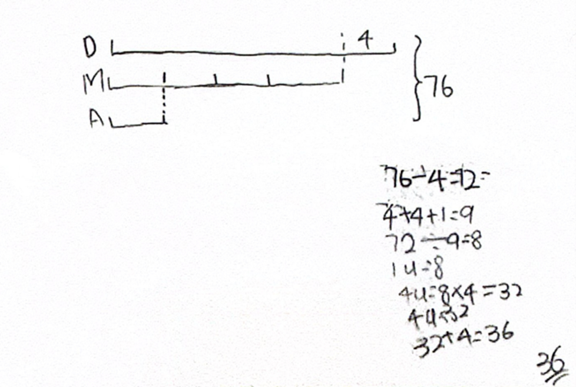 D 4
M
A
76
76-4=72=
4+4+1=9
72÷9=8
1u=8
4u=8×4=32
4u=32
32+4=36
36